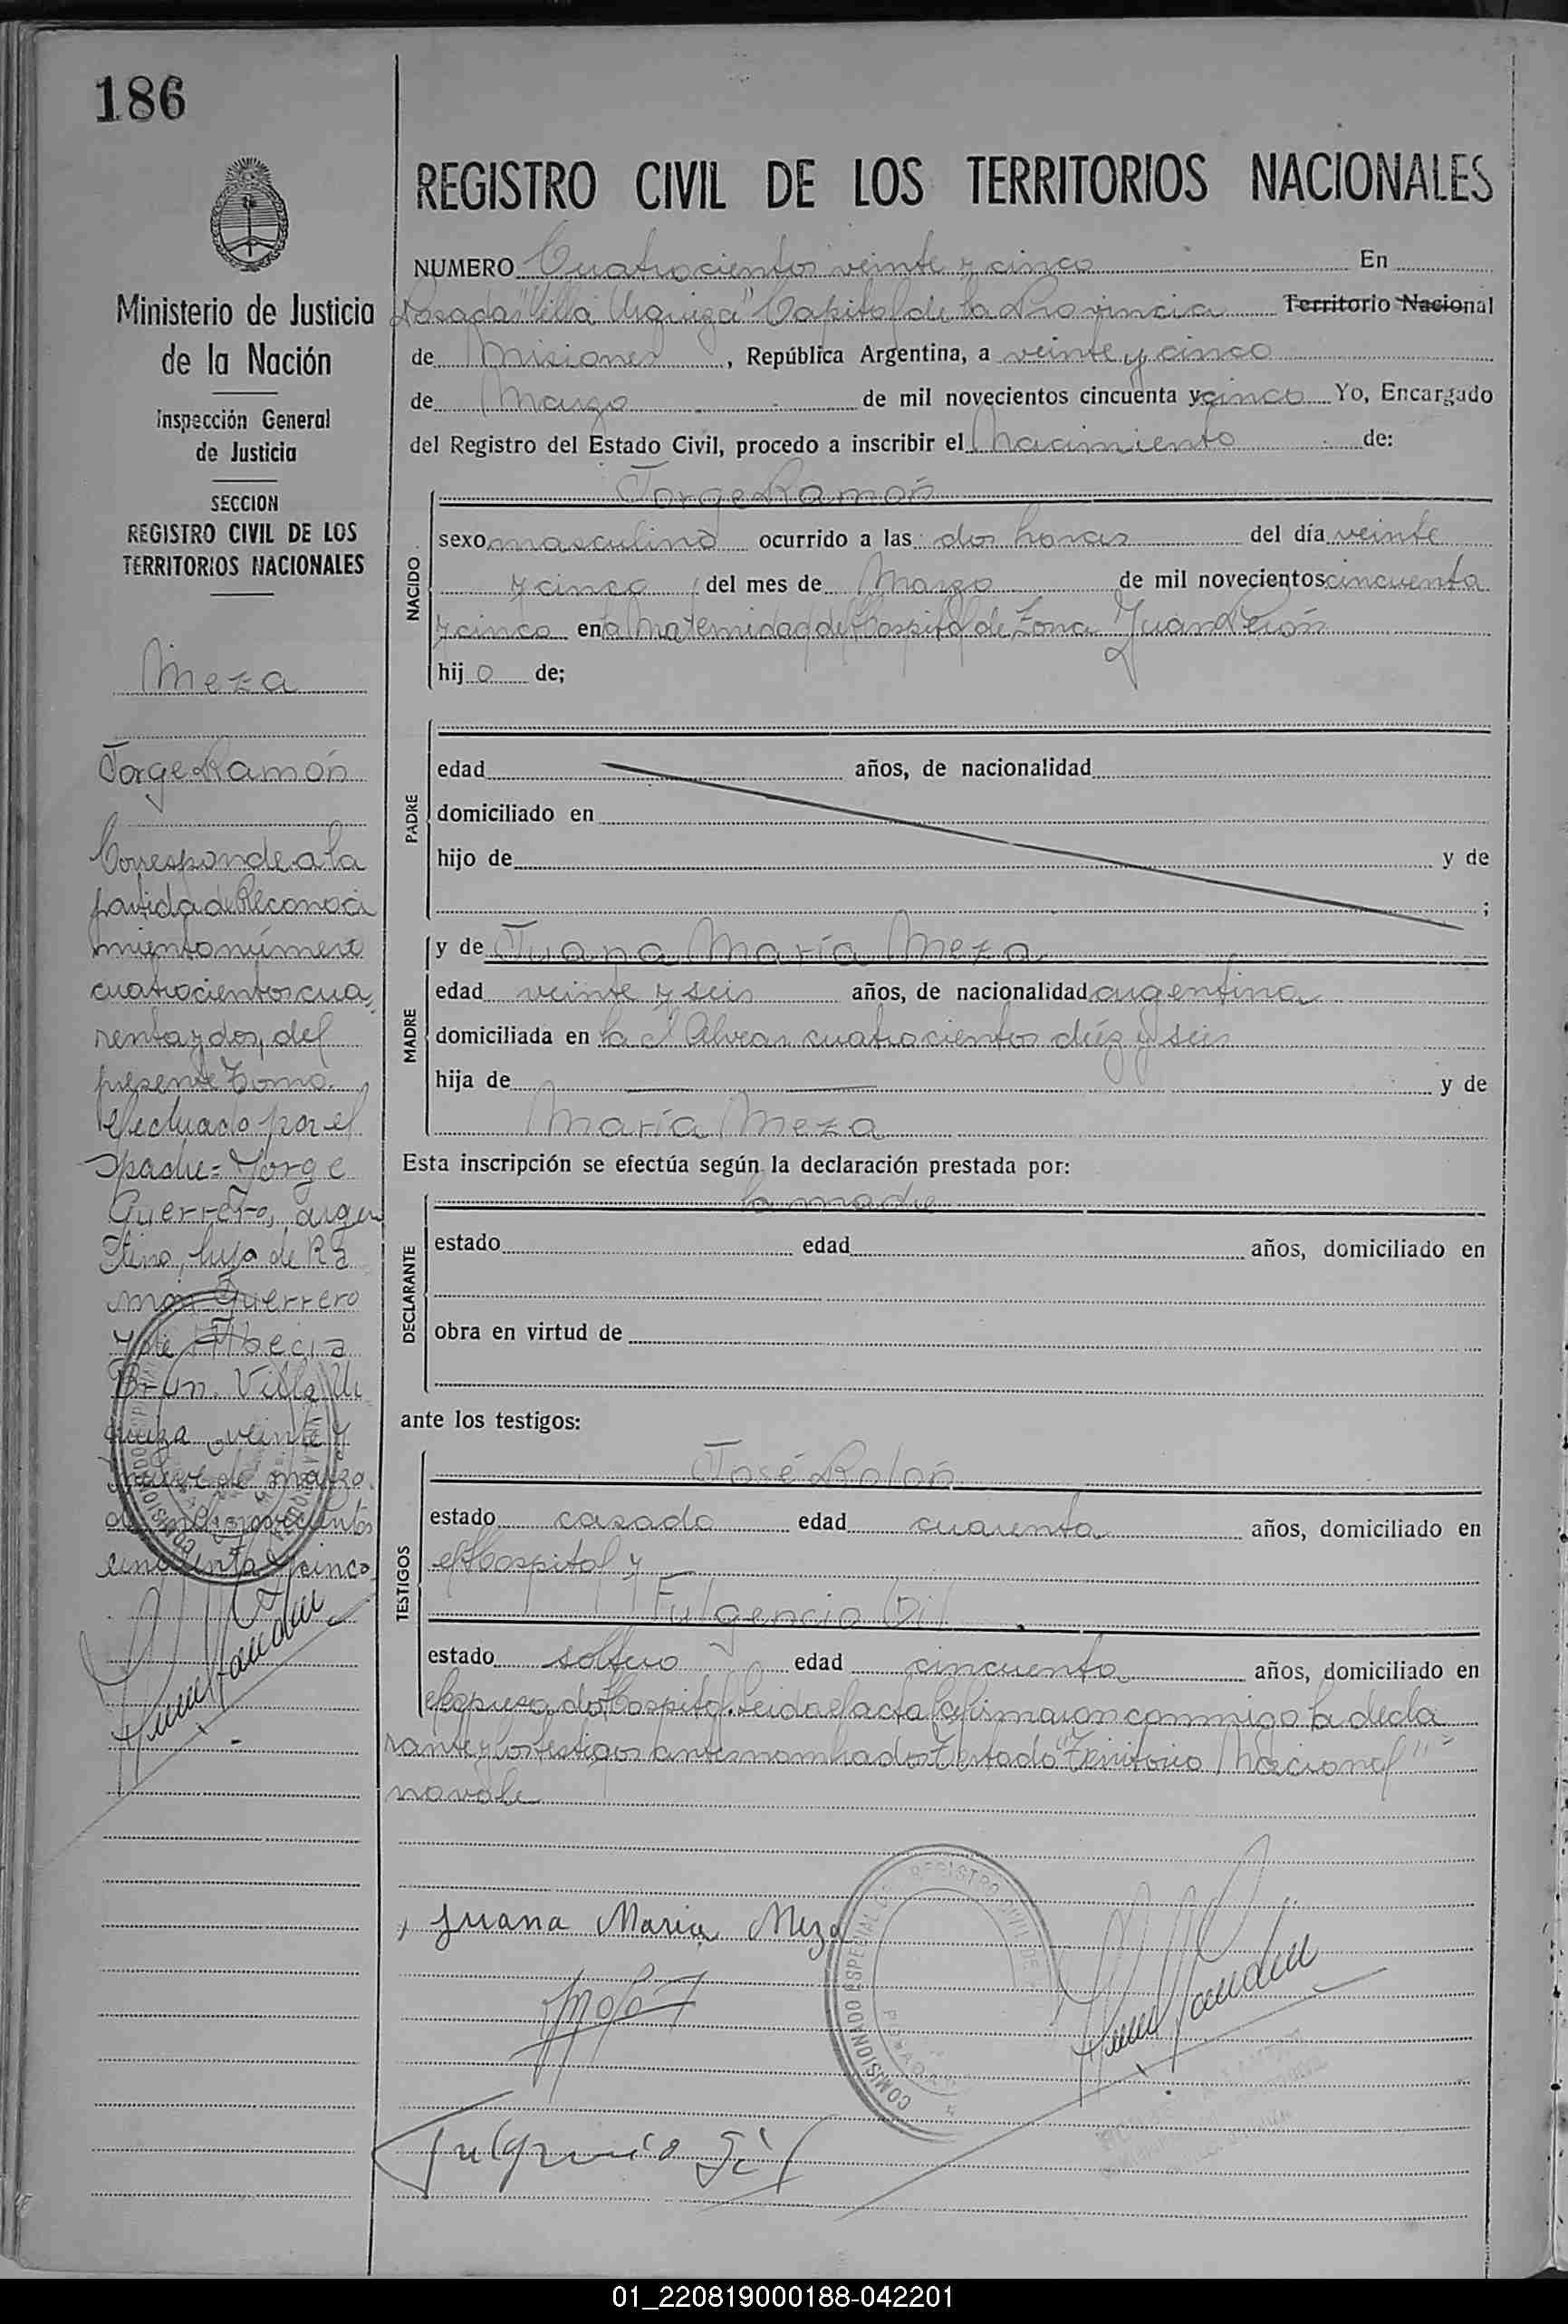 186
REGISTRO CIVIL DE LOS TERRITORIOS NACIONALES
Ministerio de Justicia
de la Nación
Inspección General
de Justicia
SECCION
REGISTRO CIVIL DE LOS
TERRITORIOS NACIONALES
Meza
Jorge Ramón
Corresponde a la
partida de Reconoci
miento número
cuatrocientos cua
renta y dos, del
presente Tomo.
efectuado por el
padre = Jorge
Guerrero, argen
tino, hijo de Ra
món Guerrero
y de
Brun. Villa Ur
quiza veinte y
nueve de marzo
de mil novecientos
cincuenta y cinco
NUMERO Cuatrocientos veinte y cinco En
Posadas "Villa Urquiza" Capital de la Provincia Territorio Nacional
de Misiones, República Argentina, a veinte y cinco
de Marzo de mil novecientos cincuenta y cinco Yo, Encargado
del Registro del Estado Civil, procedo a inscribir el Nacimiento de:
Jorge Ramón
NACIDO
sexo masculino ocurrido a las dos horas del día veinte
y cinco del mes de Marzo de mil novecientos cincuenta
y cinco en la Maternidad del Hospital de Zona Juan Perón
hijo de;
PADRE
edad años, de nacionalidad
domiciliado en
hijo de y de
;
y de Juana María Meza
MADRE
edad veinte y seis años, de nacionalidad argentina
domiciliada en la Alvear cuatrocientos diéz y seis
hija de y de
María Meza
Esta inscripción se efectúa según la declaración prestada por:
la madre
DECLARANTE
estado edad años, domiciliado en
obra en virtud de
ante los testigos:
José Rolón
TESTIGOS
estado casado edad cuarenta años, domiciliado en
el Hospital y
Fulgencio Gil
estado soltero edad cincuenta años, domiciliado en
el expresado Hospital. Leida el acta la firmaron conmigo la decla
rante y los testigos antes nombrados Testado "Territorio Nacional"
no vale
Juana Maria Meza
Fulgencio Gil
COMISIONADO ESPECIAL DEL REGISTRO CIVIL DE
POSADAS
01_220819000188-042201